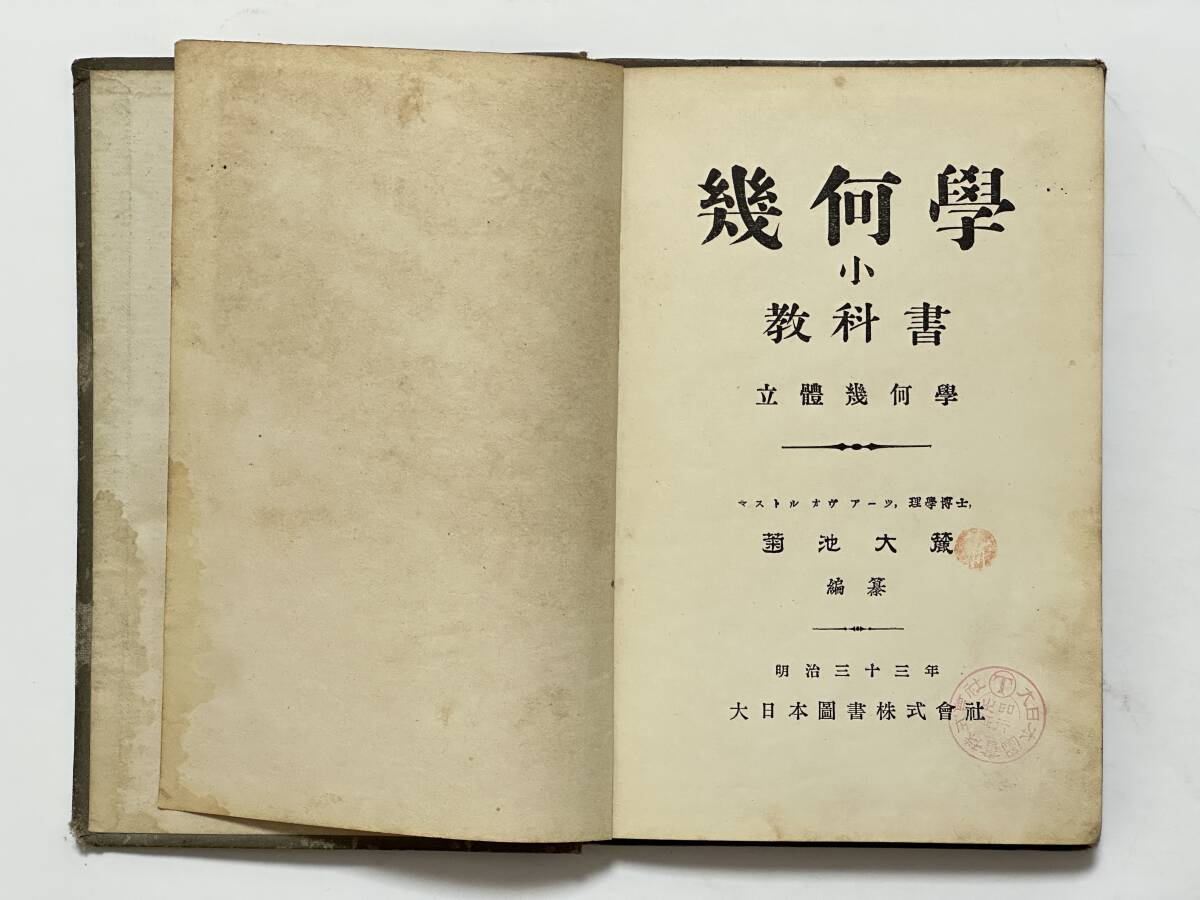 幾何學
小
教科書
立體幾何學
マストル オヴ アーツ, 理學博士,
菊池大麓
編纂
明治三十三年
大日本圖書株式會社
大日本圖書株式會社